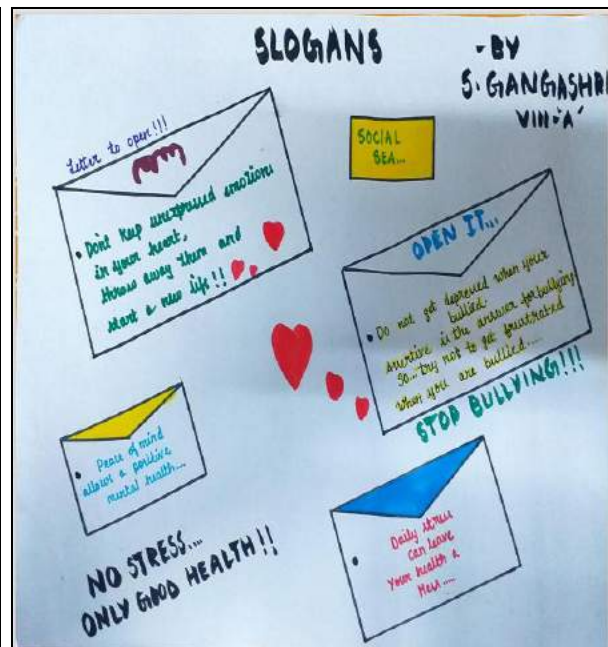 SLOGANS
- BY
S. GANGASHRI
VIII-'A'
Letter to open!!!
• Don't keep unexpressed emotions
in your heart,
throw away them and
start a new life!!
SOCIAL
SEA...
OPEN IT...
• Do not get depressed when your
bullied.
Assertive is the answer for bullying
So...try not to get frustrated
when you are bullied....
STOP BULLYING!!!
• Peace of mind
allows a positive
mental health...
NO STRESS....
ONLY GOOD HEALTH!!
• Daily stress
can leave
Your health a
Mess....